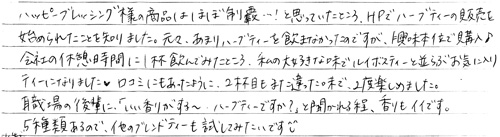 ハッピープレッシング様の商品はほぼ制覇…!と思っていたところ、HPでハーブティーの販売を
始められたことを知りました。元々、あまりハーブティーを飲まなかったのですが、興味本位で購入♪
会社の休憩時間に1杯飲んでみたところ、私の大好きな味でルイボスティーと並らぶお気に入り
ティーになりました♥ 口コミにもあったように、2杯目もまた違った味で、2度楽しめました。
職場の後輩に、「いい香りがする〜 ハーブティーですか?」と聞かれる程、香りもイイです。
5種類あるので、他のブレンドティーも試してみたいです☺